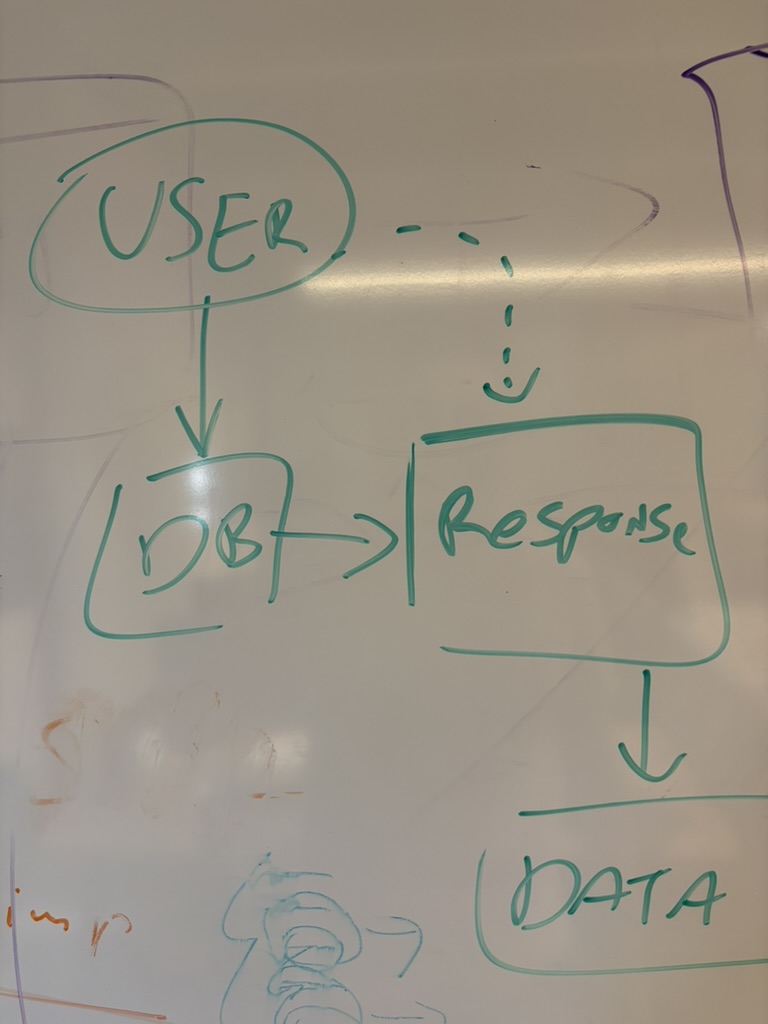 USER
DB
Response
DATA